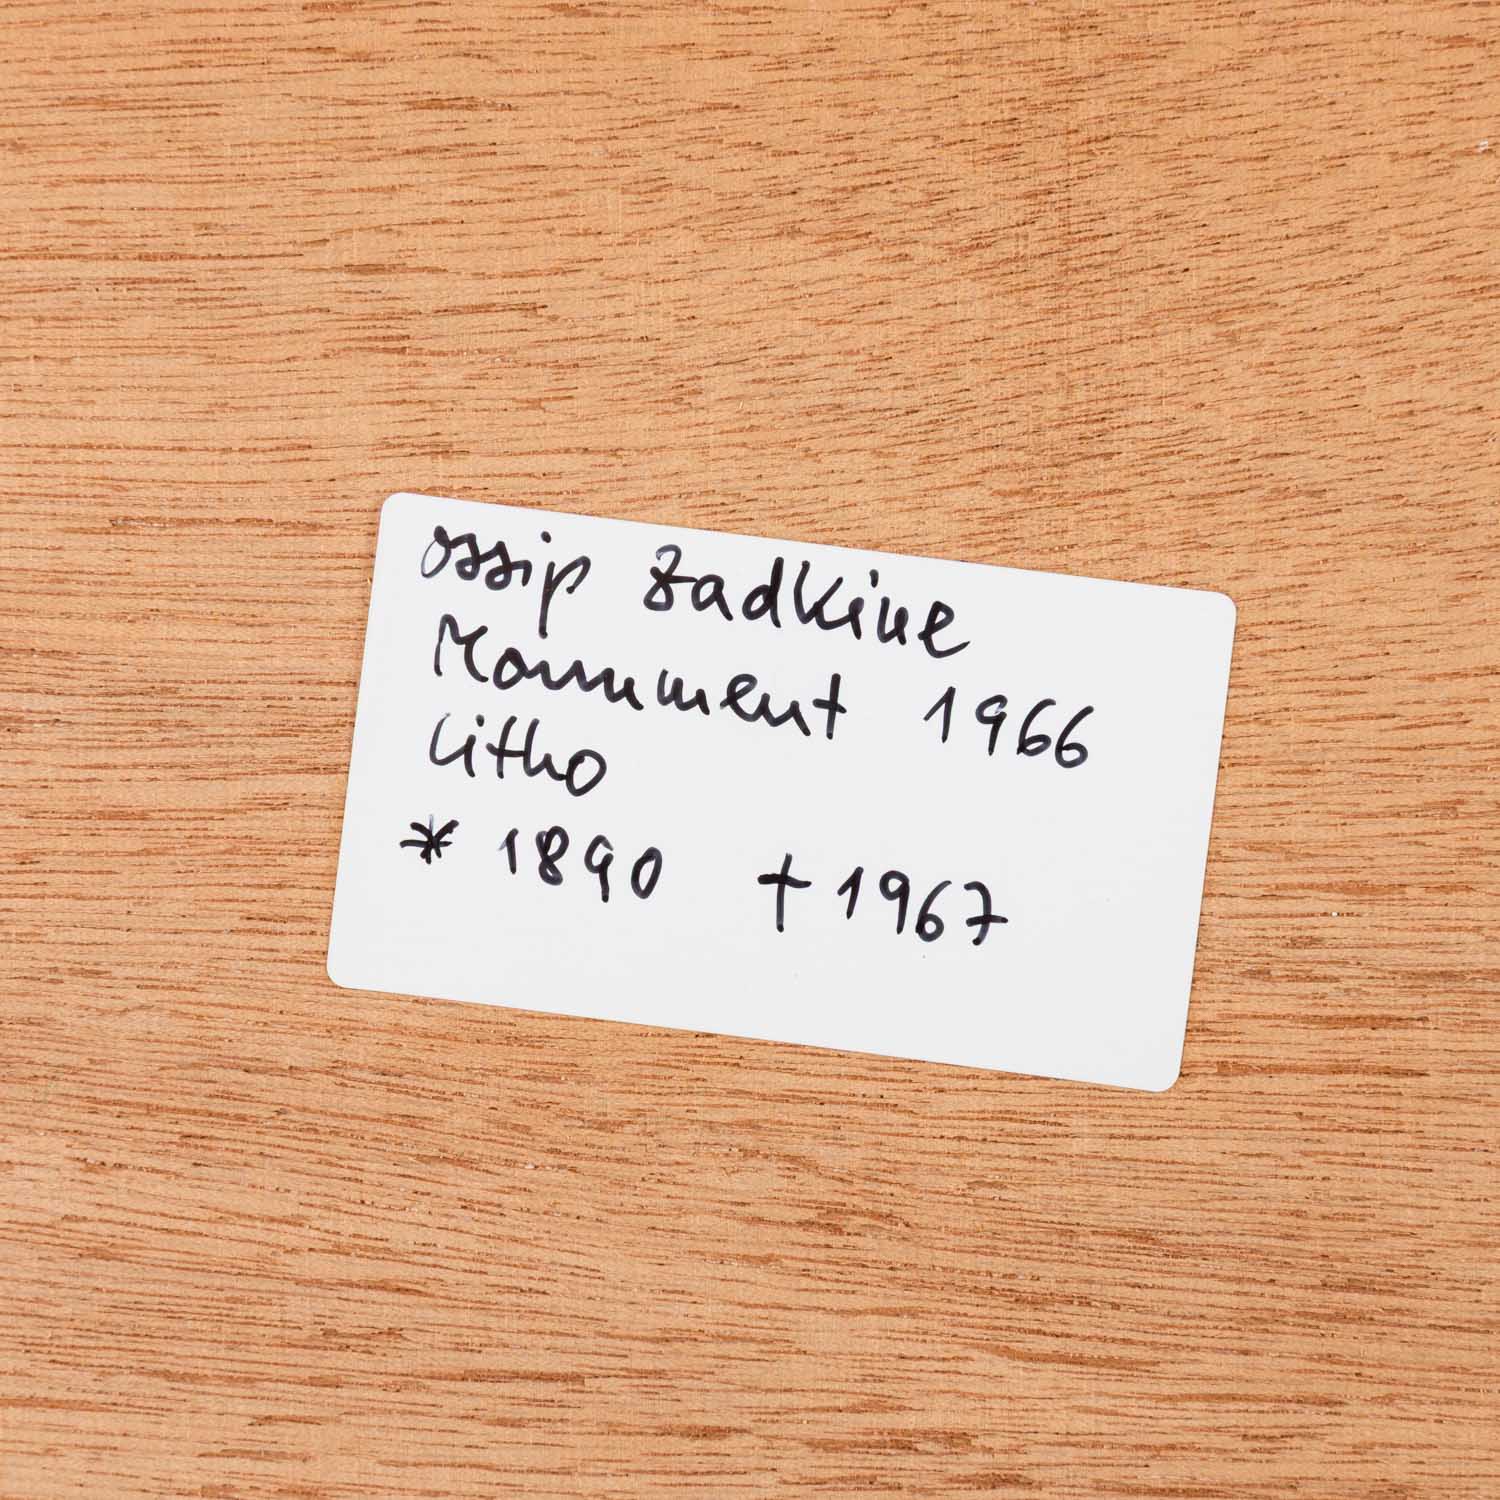 Ossip Zadkine
Monument 1966
Litho
* 1890 † 1967